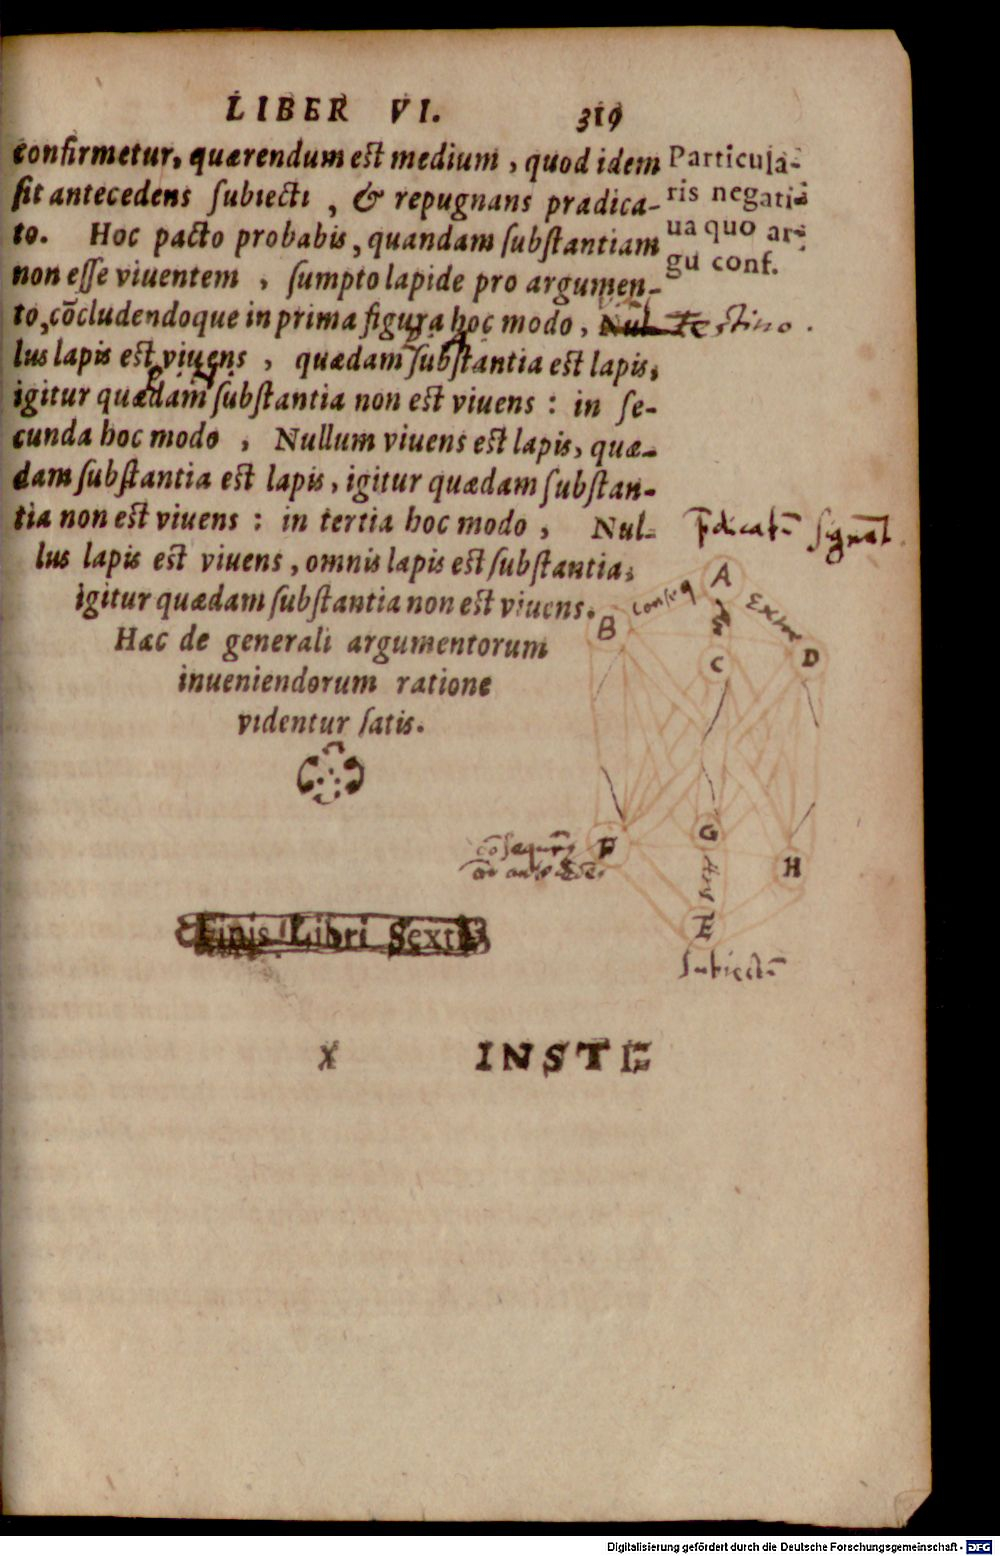 LIBER VI. 319
confirmetur, quærendum est medium, quod idem
sit antecedens subiecti, & repugnans prædica-
to. Hoc pacto probabis, quandam substantiam
non esse viuentem, sumpto lapide pro argumen-
to, cōcludendoque in prima figura hoc modo, Nul-
lus lapis est viuens, quædam substantia est lapis,
igitur quædam substantia non est viuens: in se-
cunda hoc modo, Nullum viuens est lapis, quæ-
dam substantia est lapis, igitur quædam substan-
tia non est viuens: in tertia hoc modo, Nul-
lus lapis est viuens, omnis lapis est substantia,
igitur quædam substantia non est viuens.
Hæc de generali argumentorum
inueniendorum ratione
videntur satis.
Particula-
ris negati-
ua quo ar-
gu conf.
Festino.
A
B
conseq
Extra
C
D
F
G
H
E
Subiectū
Finis Libri Sexti
X INSTI
Digitalisierung gefördert durch die Deutsche Forschungsgemeinschaft - DFG